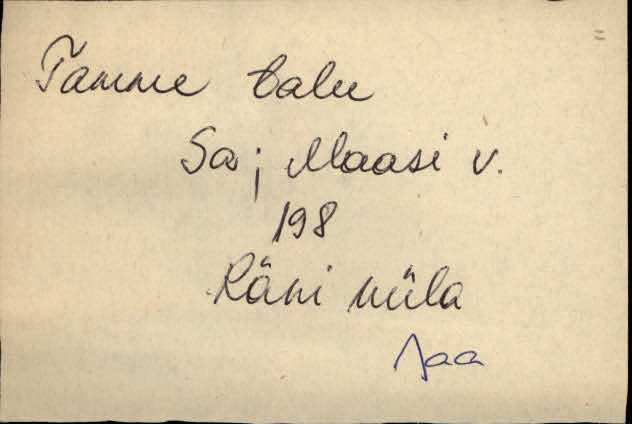 Tamme talu
Sa; Maasi v.
198
Räni küla
Jaa